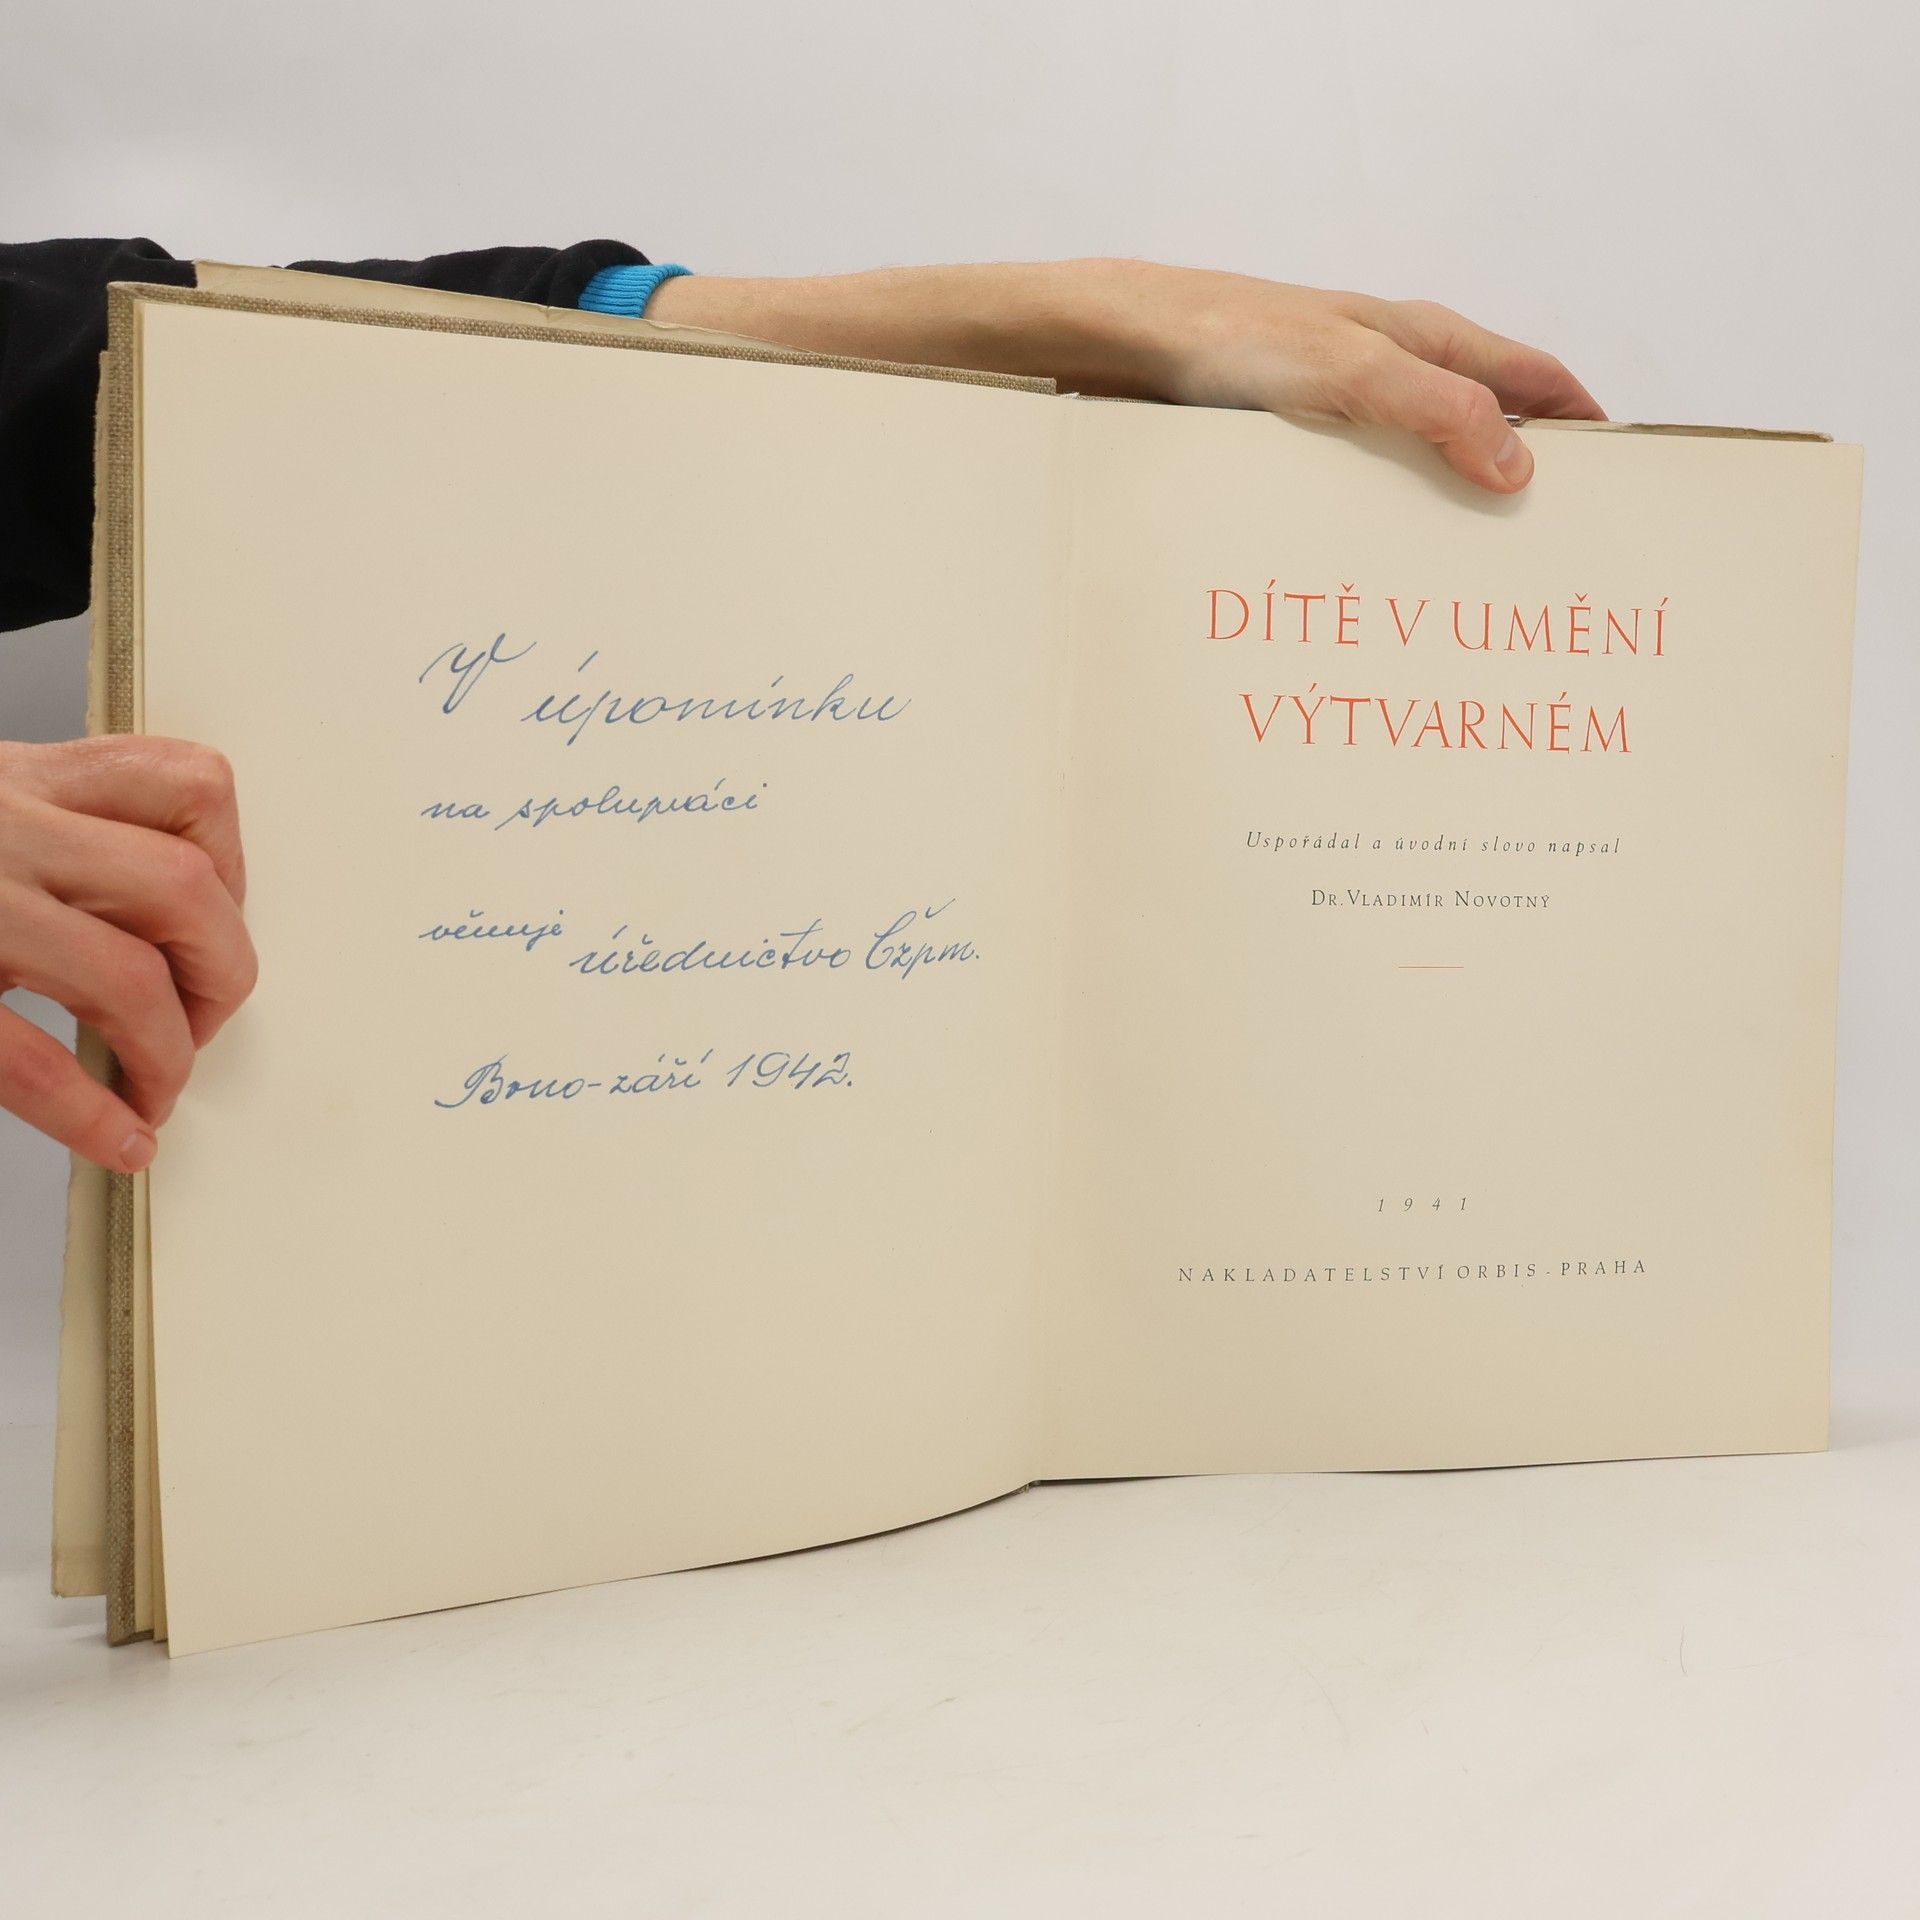 V úpomínku
na spolupráci
věnuje úřednictvo Čzpm.
Brno-září 1942.
DÍTĚ V UMĚNÍ
VÝTVARNÉM
Uspořádal a úvodní slovo napsal
DR. VLADIMÍR NOVOTNÝ
1941
NAKLADATELSTVÍ ORBIS - PRAHA